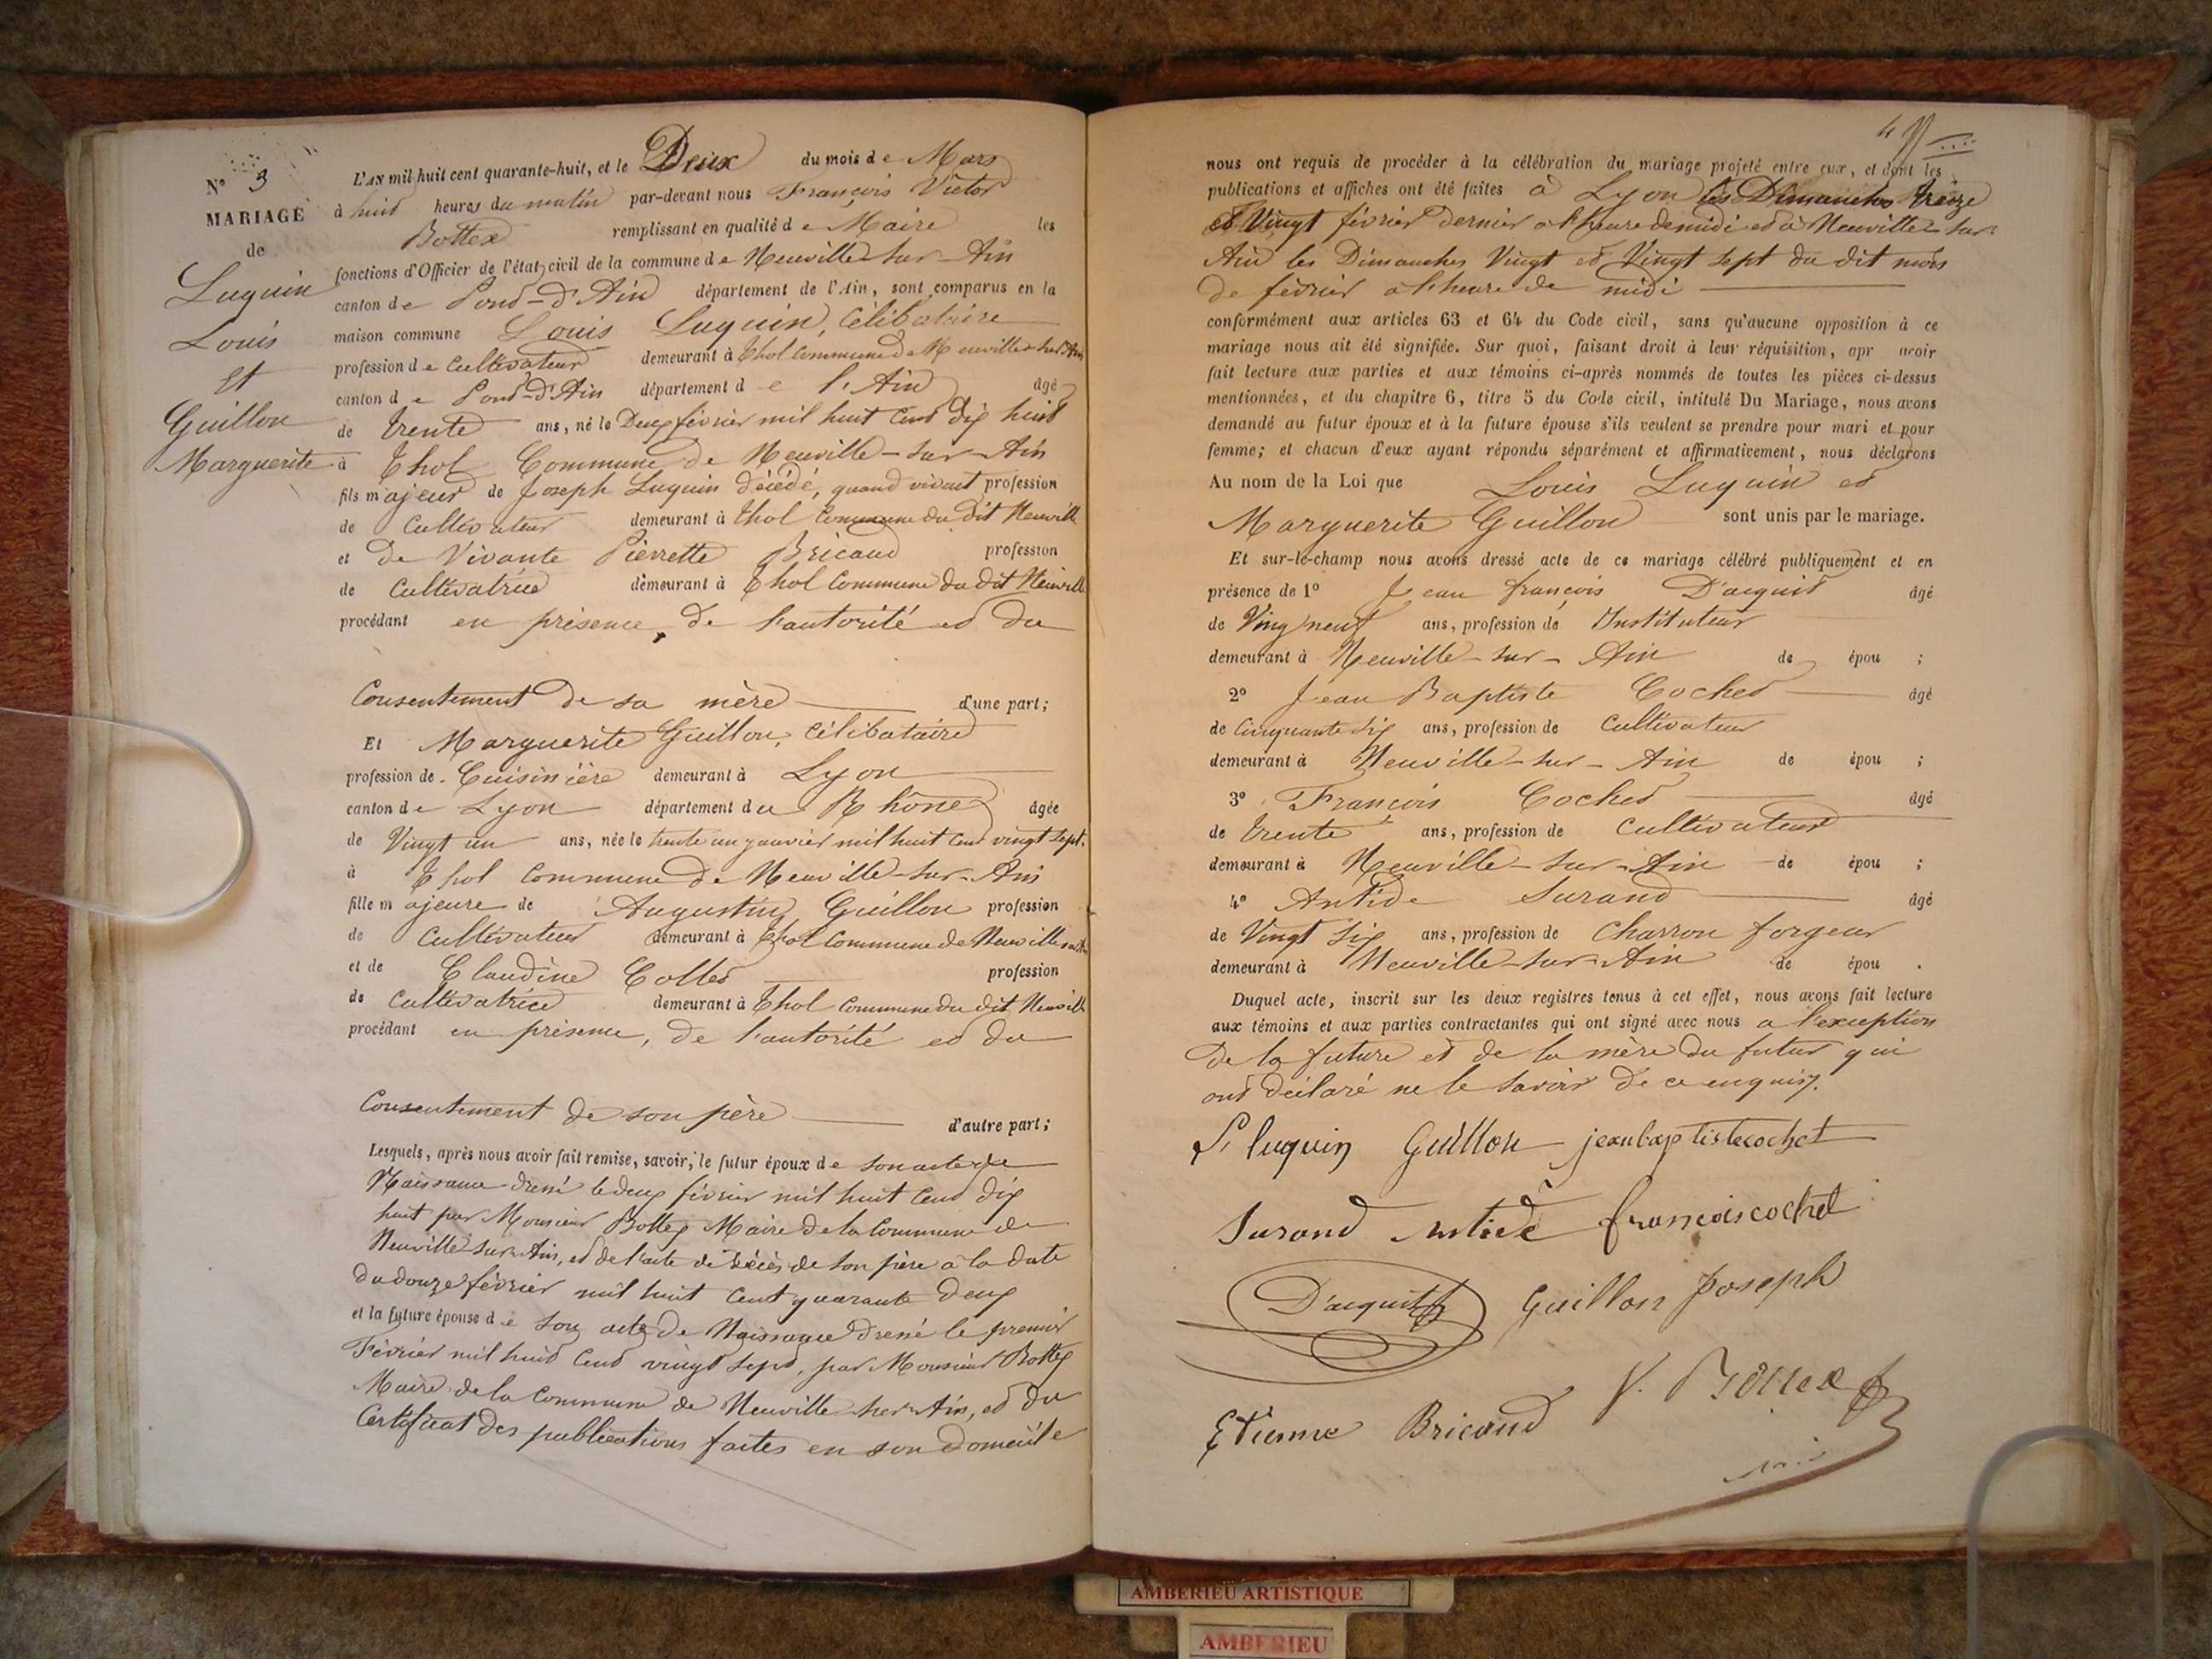 N° 3
MARIAGE
de
Luquin
Louis
Et
Guillon
Marguerite
L'AN mil huit cent quarante-huit, et le Deux du mois de Mars
à huit heures du matin par-devant nous François Victor
Bottex remplissant en qualité de Maire les
fonctions d'Officier de l'état civil de la commune de Neuville-sur-Ain
canton de Pond-d'Ain département de l'Ain, sont comparus en la
maison commune Louis Luquin, Célibataire
profession de Cultivateur demeurant à Thol Commune de Neuville-sur-Ain
canton de Pond-d'Ain département de l'Ain âgé
de trente ans, né le Deux février mil huit Cent dix huit
à Thol Commune de Neuville-sur-Ain
fils majeur de Joseph Luquin décédé, quand vivant profession
de Cultivateur demeurant à Thol Commune du dit Neuville
et de Vivante Pierrette Bricaud profession
de Cultivatrice demeurant à Thol Commune du dit Neuville
procédant en présence, de l'autorité et du
Consentement de sa mère d'une part;
Et Marguerite Guillon, Célibataire
profession de Cuisinière demeurant à Lyon
canton de Lyon département du Rhône âgée
de Vingt un ans, née le trente un janvier mil huit Cent vingt sept.
à Thol Commune de Neuville-sur-Ain
fille majeure de Augustin Guillon profession
de Cultivateur demeurant à Thol Commune de Neuville sur Ain
et de Claudine Collet profession
de Cultivatrice demeurant à Thol Commune du dit Neuville
procédant en présence, de l'autorité et du
Consentement de son père d'autre part;
Lesquels, après nous avoir fait remise, savoir, le futur époux de son acte de
Naissance dressé le deux février mil huit Cent dix
huit par Monsieur Bottex Maire de la Commune de
Neuville-sur-Ain, et de l'acte de décès de son père à la date
du douze février mil huit Cent quarante deux
et la future épouse de son acte de Naissance dressé le premier
Février mil huit Cent vingt sept, par Monsieur Bottex
Maire de la Commune de Neuville-sur-Ain, et du
Certificat des publications faites en son domicile
4
nous ont requis de procéder à la célébration du mariage projeté entre eux, et dont les
publications et affiches ont été faites à Lyon les Dimanches treize
et Vingt février dernier à l'heure de midi et à Neuville-sur-
Ain les Dimanches Vingt et Vingt Sept du dit mois
de février à l'heure de midi
conformément aux articles 63 et 64 du Code civil, sans qu'aucune opposition à ce
mariage nous ait été signifiée. Sur quoi, faisant droit à leur réquisition, apr avoir
fait lecture aux parties et aux témoins ci-après nommés de toutes les pièces ci-dessus
mentionnées, et du chapitre 6, titre 5 du Code civil, intitulé Du Mariage, nous avons
demandé au futur époux et à la future épouse s'ils veulent se prendre pour mari et pour
femme; et chacun d'eux ayant répondu séparément et affirmativement, nous déclarons
Au nom de la Loi que Louis Luquin et
Marguerite Guillon sont unis par le mariage.
Et sur-le-champ nous avons dressé acte de ce mariage célébré publiquement et en
présence de 1° Jean françois D'acquit âgé
de Ving neuf ans, profession de Instituteur
demeurant à Neuville-sur-Ain de épou ;
2° Jean Baptiste Cochet âgé
de Cinquante six ans, profession de Cultivateur
demeurant à Neuville-sur-Ain de épou ;
3° François Cochet âgé
de trente ans, profession de Cultivateur
demeurant à Neuville-sur-Ain de épou ;
4° Antide Surand âgé
de Vingt six ans, profession de Charron forgeur
demeurant à Neuville-sur-Ain de épou .
Duquel acte, inscrit sur les deux registres tenus à cet effet, nous avons fait lecture
aux témoins et aux parties contractantes qui ont signé avec nous a l'exception
De la future et de la mère du futur qui
ont déclaré ne le savoir de ce enquis.
luquin Guillon jeanbaptistecochet
Surand antide francoiscochet
D'acquit Guillon Joseph
V. Bottex
Etienne Bricaud
AMBERIEU ARTISTIQUE
AMBERIEU